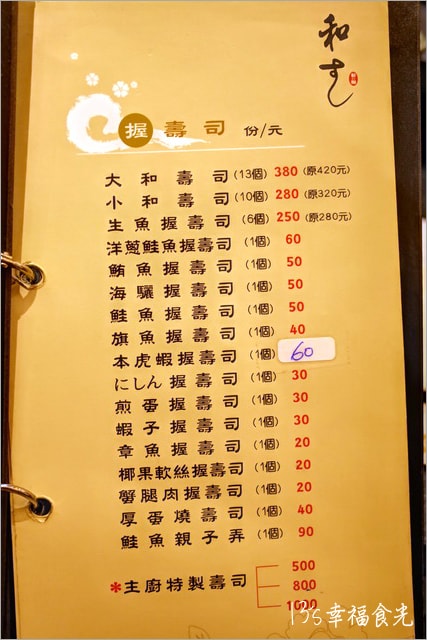 和すし
握 壽司 份/元
大和壽司 (13個) 380 (原420元)
小和壽司 (10個) 280 (原320元)
生魚握壽司 (6個) 250 (原280元)
洋蔥鮭魚握壽司 (1個) 60
鮪魚握壽司 (1個) 50
海鱺握壽司 (1個) 50
鮭魚握壽司 (1個) 50
旗魚握壽司 (1個) 40
本虎蝦握壽司 (1個) 60
にしん握壽司 (1個) 30
煎蛋握壽司 (1個) 30
蝦子握壽司 (1個) 30
章魚握壽司 (1個) 20
椰果軟絲握壽司 (1個) 20
蟹腿肉握壽司 (1個) 20
厚蛋燒壽司 (1個) 40
鮭魚親子弄 (1個) 90
500
*主廚特製壽司 800
1000
13's幸福食光